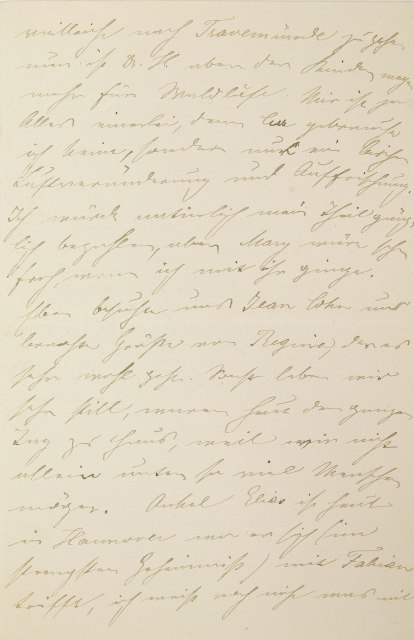 vielleicht nach Travemünde zu gehen
nun ist Dr. H. aber der Kinder wegen
mehr für Waldluft. Mir ist ja
Alles einerlei, denn gebrauche
ich keine, sondern nur ein bischen
Luftveränderung und Auffrischung.
Ich würde natürlich mein Theil gänz-
lich bezahlen, aber Mary wäre sehr
froh, wenn ich mit ihr ginge.
Eben besuchte uns Jean Cohn und
brachte Grüße von Regine, der es
sehr wohl geht. Sonst leben wir
sehr still, waren heut den ganzen
Tag zu Haus, weil wir nicht
allein unter so viel Menschen
mögen. Onkel Elias ist heut
in Hannover wo er sich (im
strengsten Geheimniß) mit Fabian
trifft, ich weiß noch nicht was mit